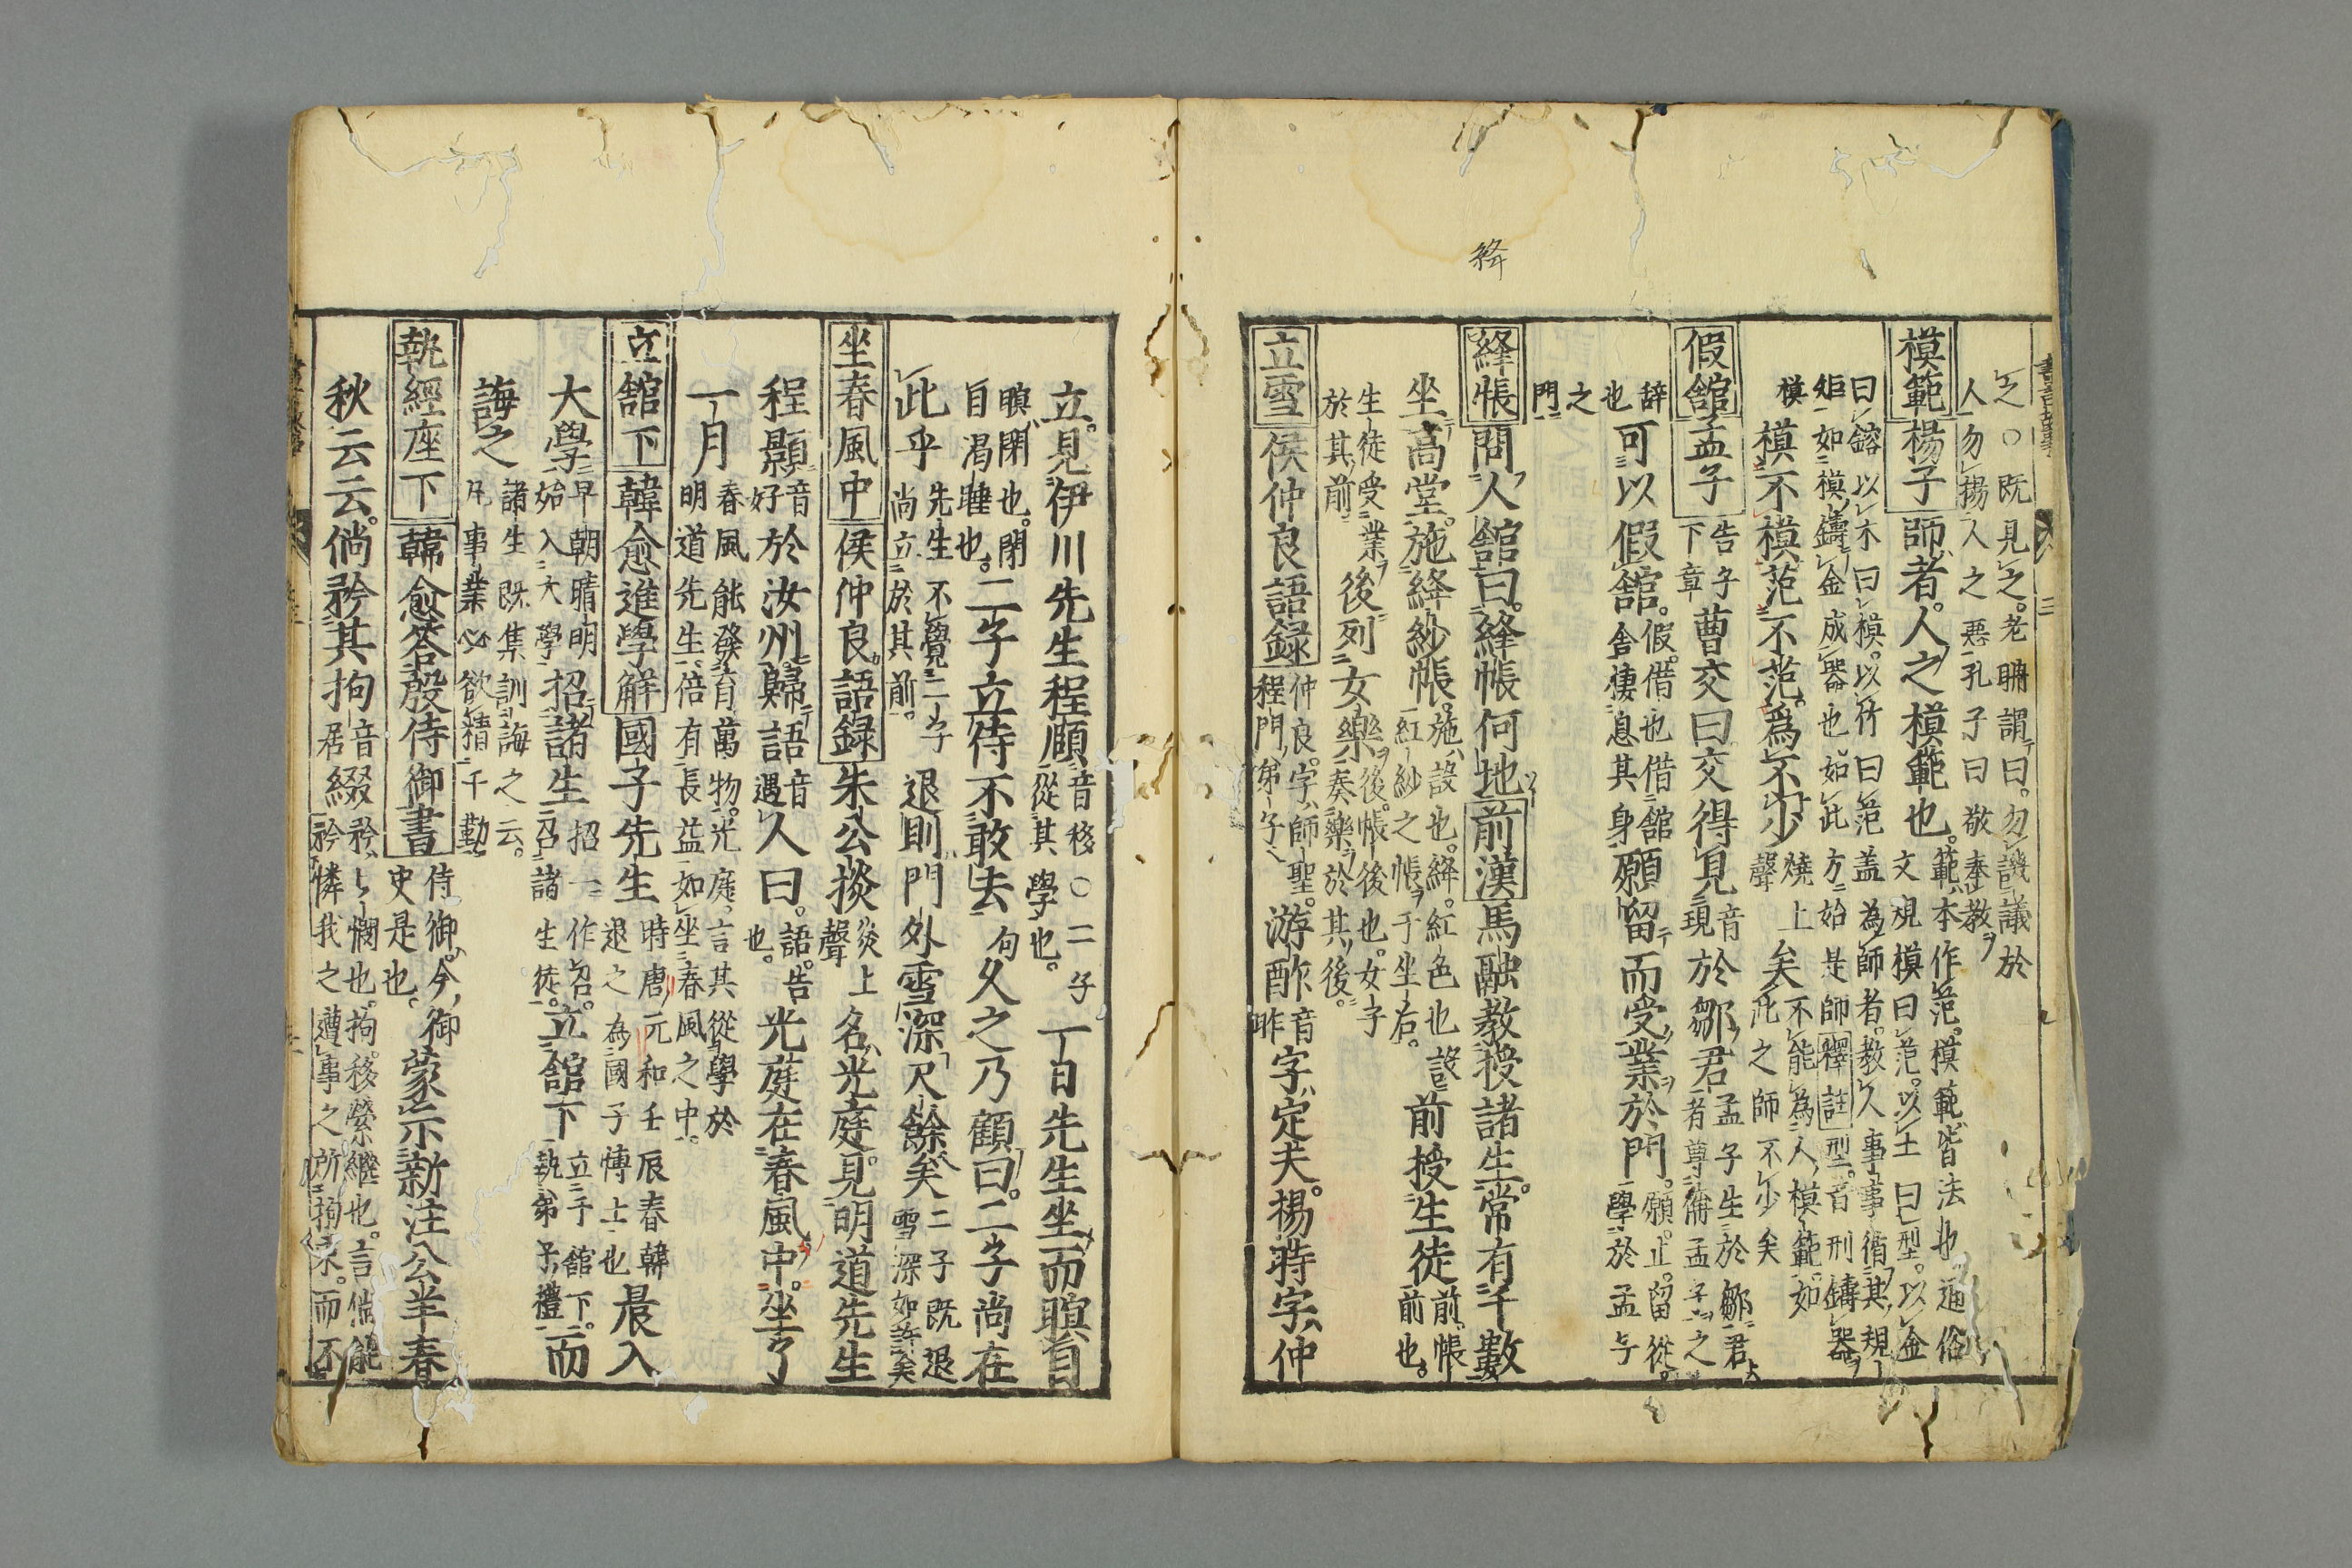 絳
之○既見之。老聃謂曰。勿譏議於
人勿揚人之惡孔子曰敬奉教
模範楊子師者。人之模範也。範本作范。模範皆法也。通俗
文規模曰范。以土曰型。以金
曰鎔以木曰模。以竹曰范盖為師者。教人事事循其規
矩如模鑄金成器也如此方始是師釋註型。音刑鑄器
模模不模范不范。為不少燒上聲矣不能為人模範。如
此之師不少矣
假舘孟子告子下章曹交曰交得見音現於鄒君孟子生於鄒君
者尊稱孟子之
辞也可以假舘。假。借也借舘舎棲息其身願留而受業於門。願。止。留從。
學於孟子
之門
絳帳問人舘曰。絳帳何地前漢馬融教授諸生。常有千數
坐高堂。施絳紗帳。施設也。絳。紅色也設
紅紗之帳于坐右。前授生徒前。帳前也。
生徒受業於其前後列女樂後。帳後也。女子
奏樂於其後。
立雪侯仲良語録仲良。字師聖。程門弟子游酢音昨字定夫。楊時字仲
立。見伊川先生程頤音移○二子從其學也。一日先生坐而瞑目
瞑閉也。閉目渴睡也。二子立侍不敢去句久之乃顧曰。二子尚在
此乎先生不覺二子尚立於其前。退則門外雪深尺餘矣二子既退雪深如許矣
坐春風中侯仲良語録朱公掞炎上聲名光庭見明道先生
程顥音好於汝州歸語音遇人曰。語。告也。光庭在春風中。坐了
一月春風能發育萬物。光庭。言其從學於
明道先生倍有長益如坐春風之中。
立舘下韓愈進學解國子先生時唐元和壬辰春韓退之為國子博士也晨入
大學早朝晴明始入大學招諸生招一作召。召諸生徒。立舘下立于舘下。執弟子禮而
誨之諸生既集訓誨之云。凡事業必欲精千勤
執經座下韓愈答殷侍御書侍御。今御史是也。蒙示新注公羊春
秋云云。倘矜其拘音居綴矜憫也。拘。移縈繼也。言倘能
矜憐我之遭事之所拘束。而不